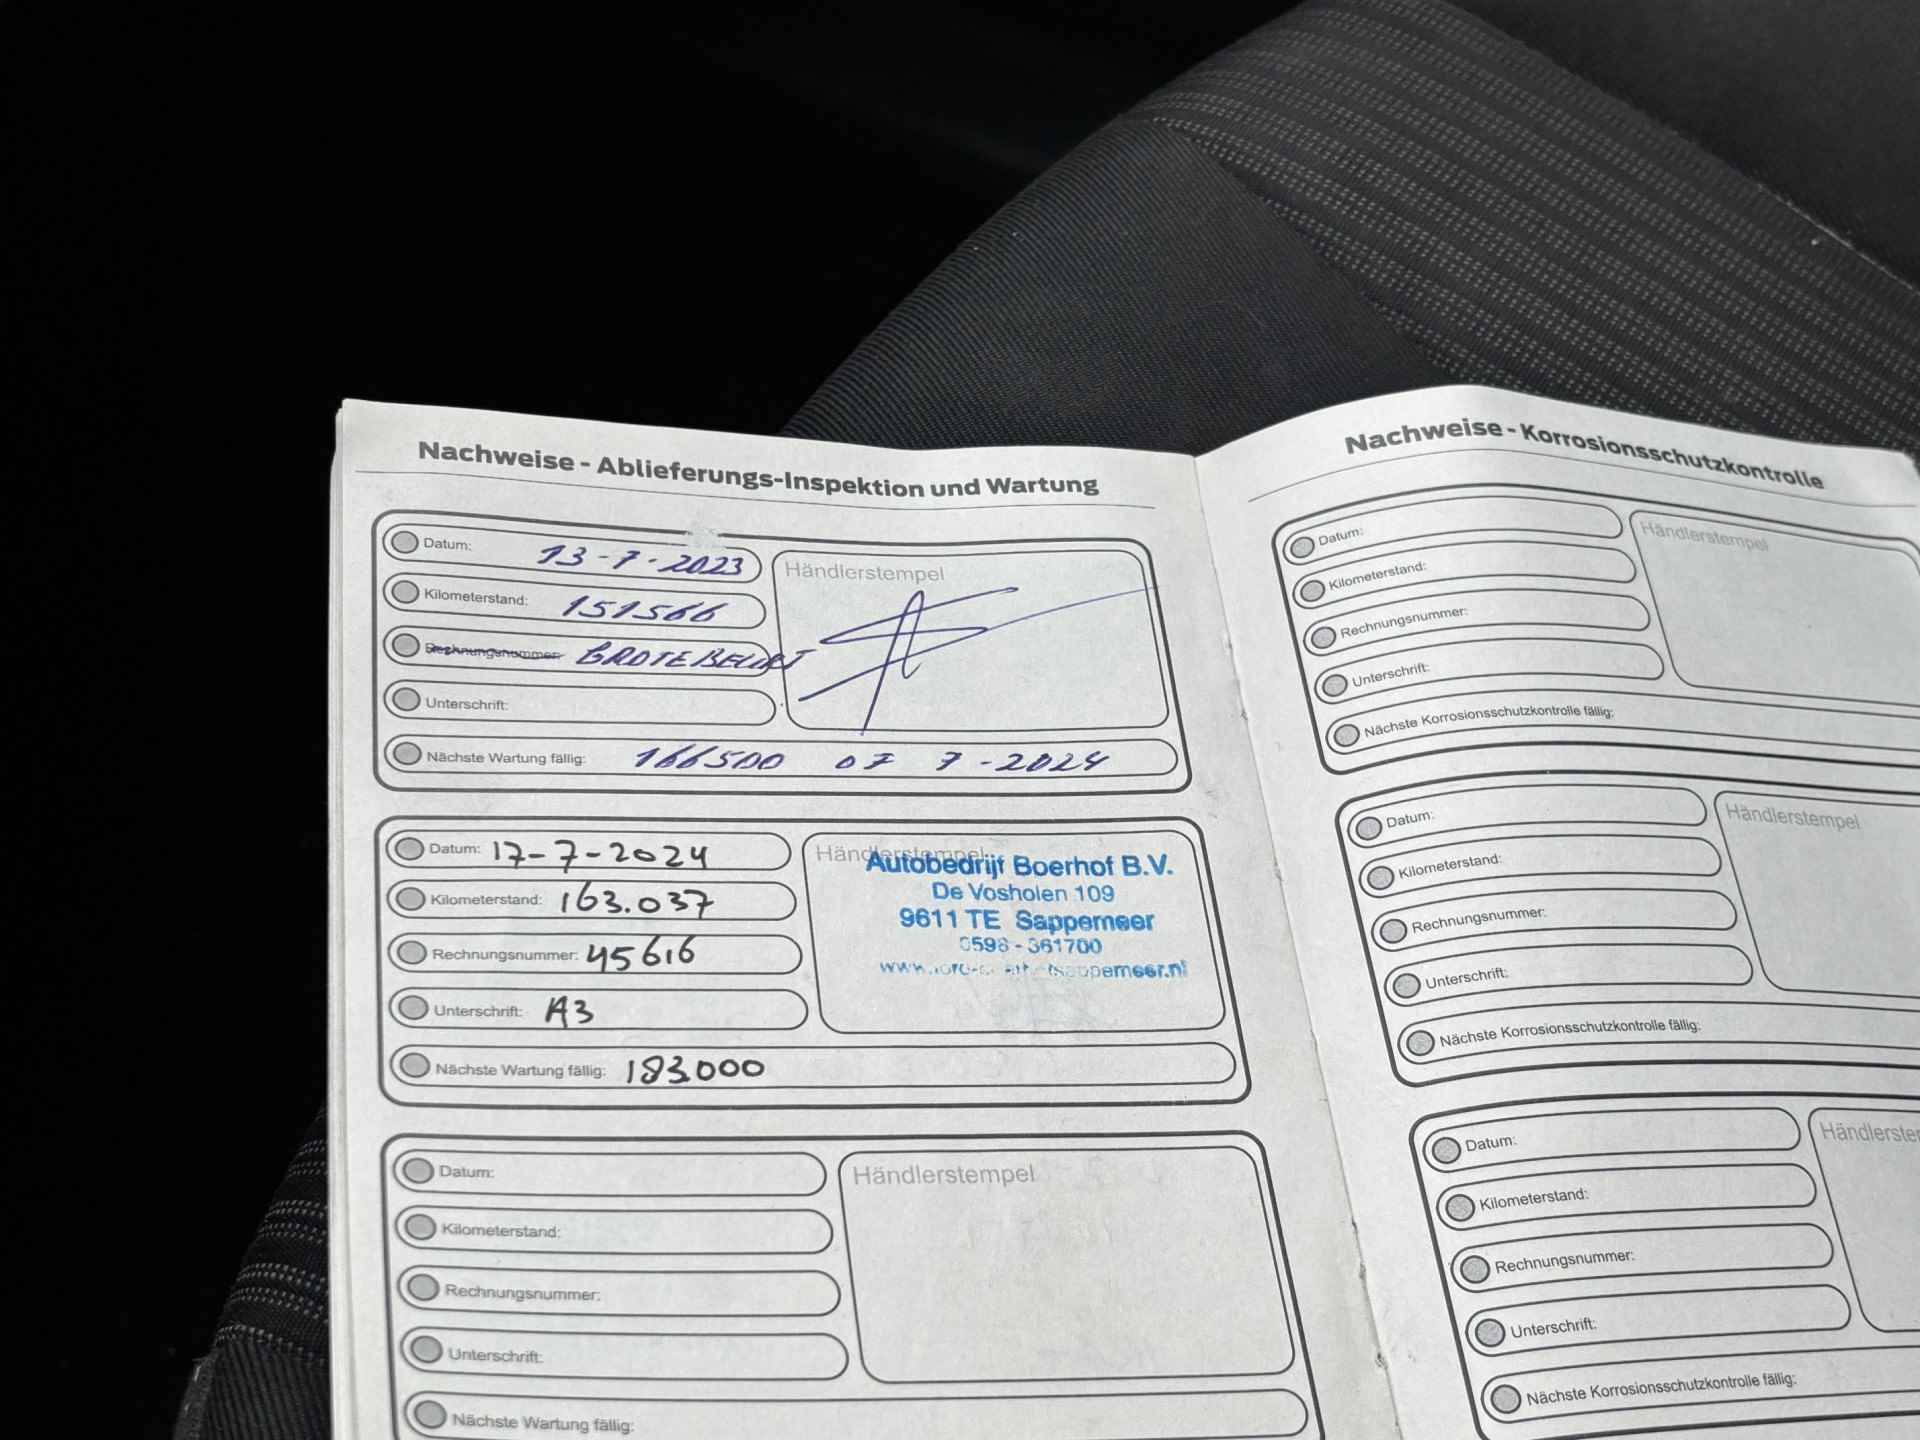 Nachweise - Ablieferungs-Inspektion und Wartung
Datum: 13-7-2023
Händlerstempel
Kilometerstand: 151566
Rechnungsnummer: GROTE BEURT
Unterschrift:
Nächste Wartung fällig: 166500 OF 7-2024
Datum: 17-7-2024
Händlerstempel
Autobedrijf Boerhof B.V.
De Vosholen 109
9611 TE Sappemeer
0598-361700
Kilometerstand: 163.037
Rechnungsnummer: 45616
Unterschrift: A3
Nächste Wartung fällig: 183.000
Datum:
Händlerstempel
Kilometerstand:
Rechnungsnummer:
Unterschrift:
Nächste Wartung fällig:
Nachweise - Korrosionsschutzkontrolle
Datum:
Händlerstempel
Kilometerstand:
Rechnungsnummer:
Unterschrift:
Nächste Korrosionsschutzkontrolle fällig:
Datum:
Händlerstempel
Kilometerstand:
Rechnungsnummer:
Unterschrift:
Nächste Korrosionsschutzkontrolle fällig:
Datum:
Händlerste
Kilometerstand:
Rechnungsnummer:
Unterschrift:
Nächste Korrosionsschutzkontrolle fällig: